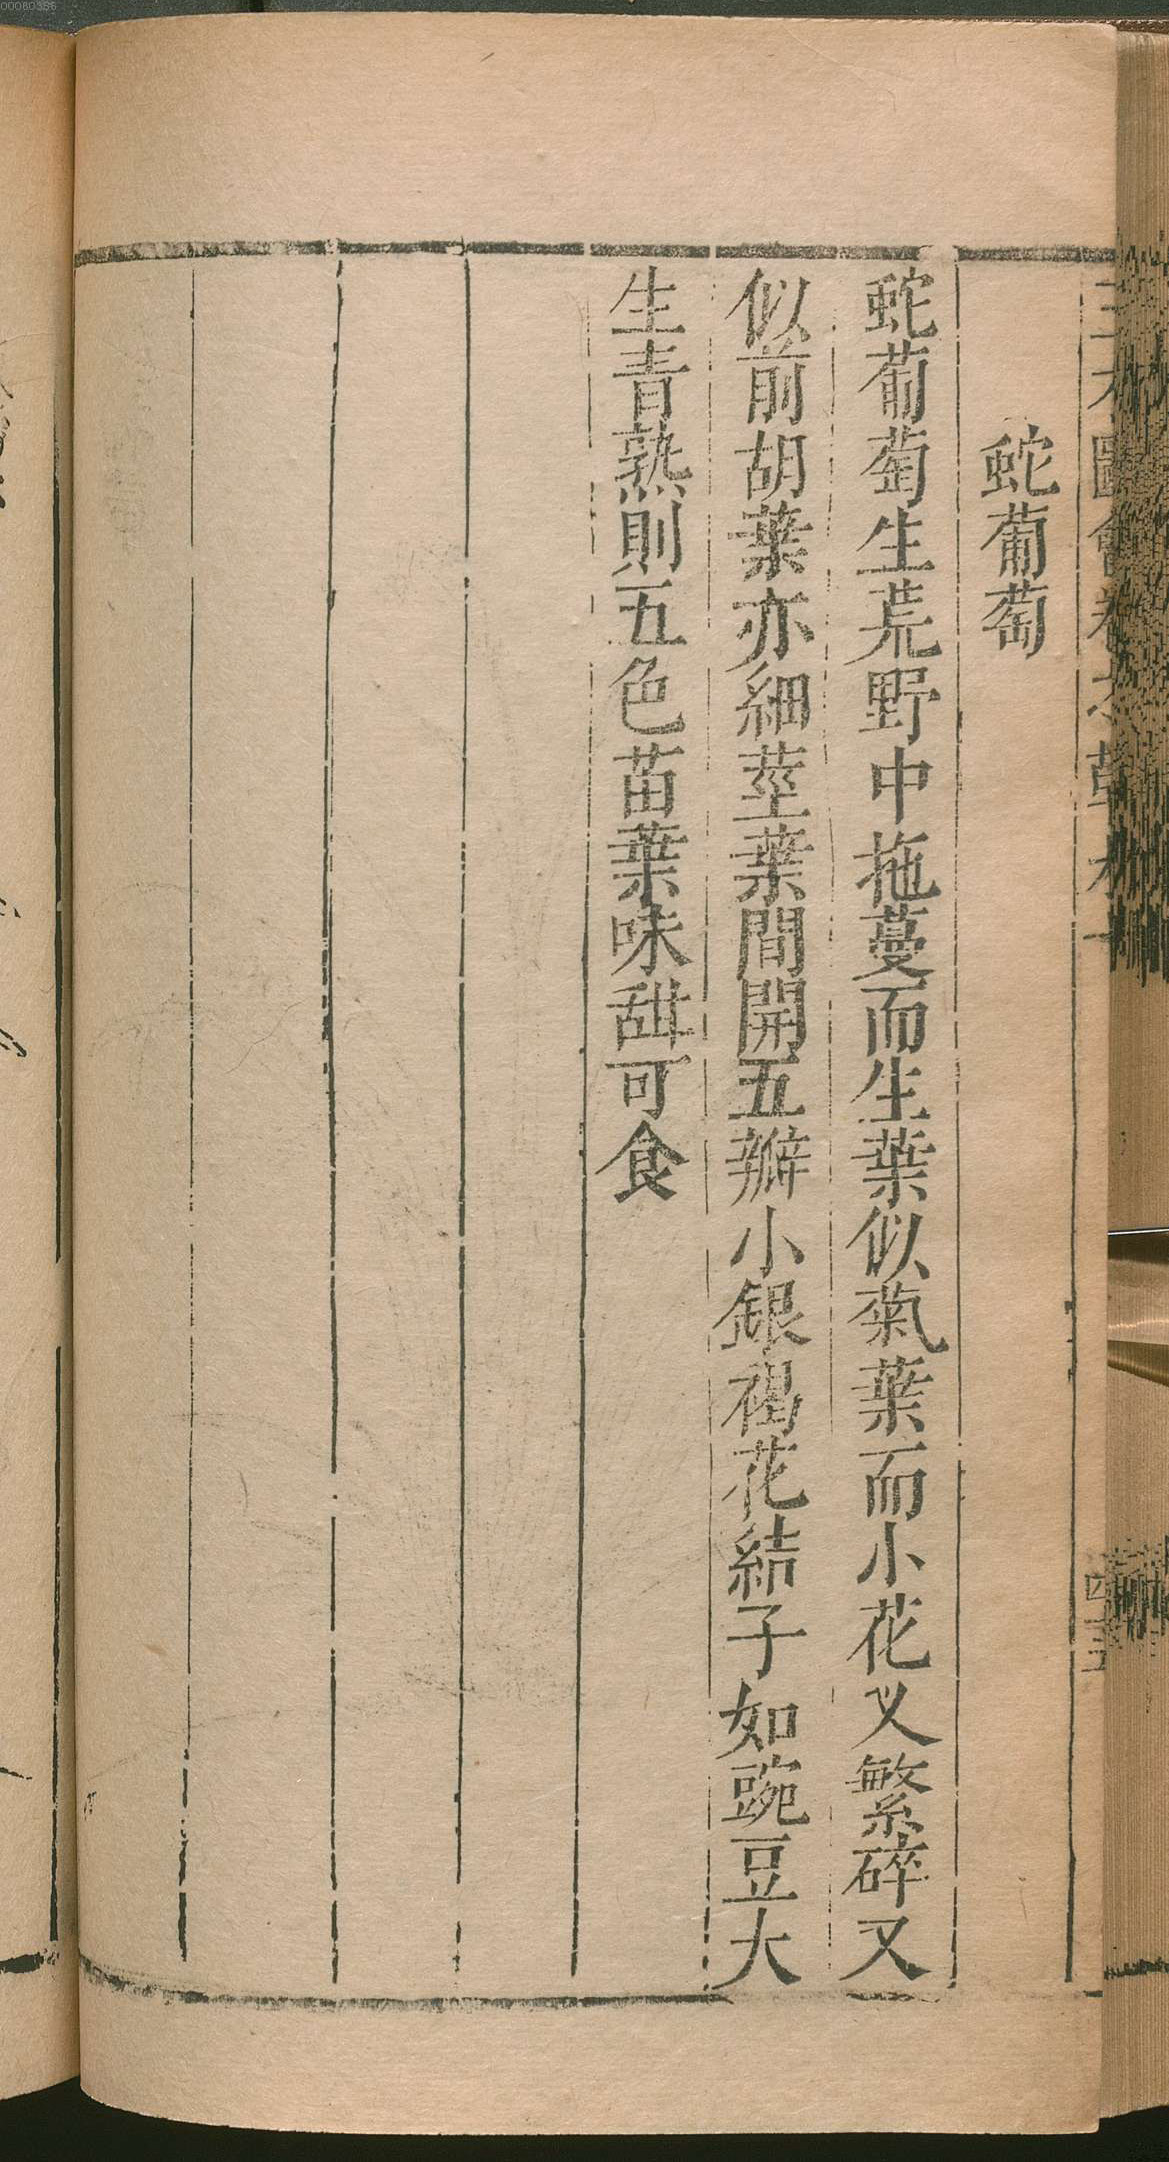 00080356
三才圖會卷之草木十
蛇葡萄
蛇葡萄生荒野中拖蔓而生葉似菊葉而小花叉繁碎又
似前胡葉亦細莖葉間開五瓣小銀褐花結子如豌豆大
生青熟則五色苗葉味甜可食